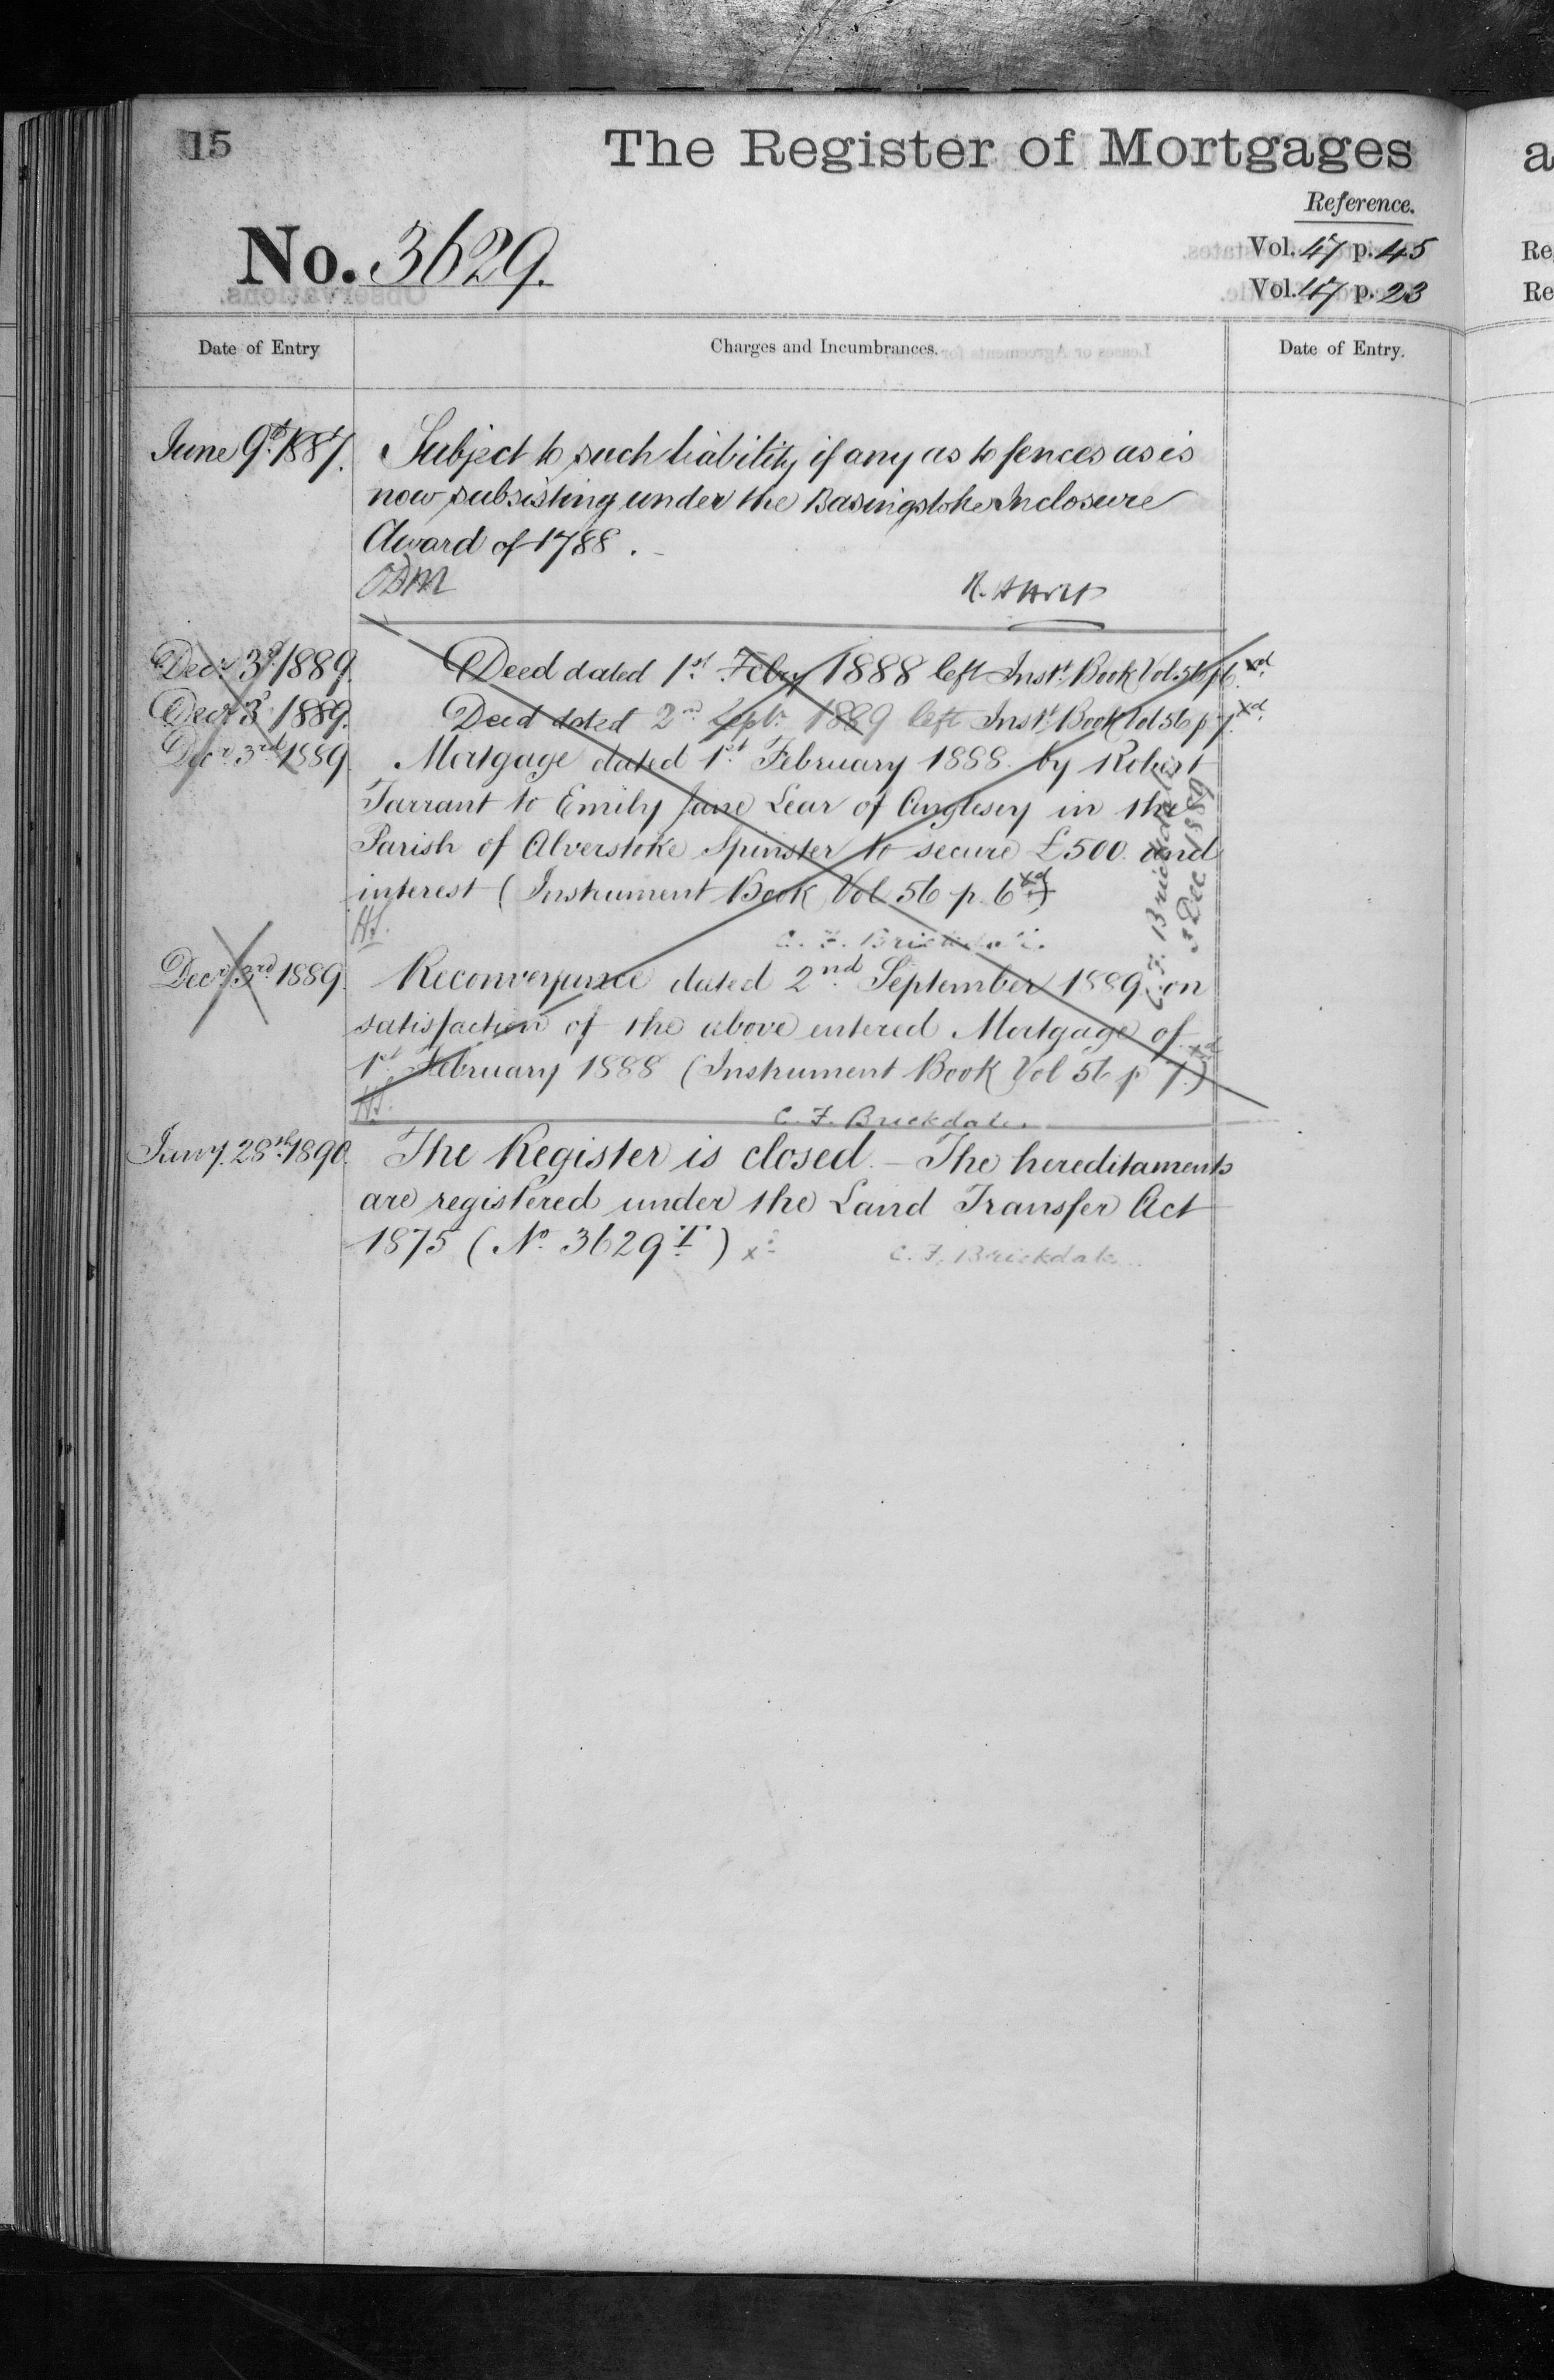 15
The Register of Mortgages
Reference.
No. 3629.
Vol. 47 p. 45
Vol. 47 p. 23
Date of Entry
Charges and Incumbrances.
Date of Entry.
June 9th 1887. Subject to such liability if any as to fences as is
now subsisting under the Basingstoke Inclosure
Award of 1788.
Decr. 3d. 1889. Deed dated 1st. Febry 1888 left Inst. Book Vol 56 p 6. xd
Decr. 3d. 1889. Deed dated 2nd Septr. 1889 left Inst. Book Vol 56 p 7. xd
Decr. 3rd 1889. Mortgage dated 1st. February 1888 by Robert
Tarrant to Emily Jane Lear of Anglesey in the
Parish of Alverstoke Spinster to secure £500 and
interest (Instrument Book Vol 56 p. 6 xd)
H.S.
C. F. Brickdale.
C. F. Brickdale
3 Dec 1889
Decr. 3rd. 1889. Reconveyance dated 2nd. September 1889 on
satisfaction of the above entered Mortgage of
1st. February 1888 (Instrument Book Vol 56 p 7. xd)
H.S.
C. F. Brickdale.
Jany. 28th. 1890. The Register is closed. – The hereditaments
are registered under the Land Transfer Act
1875 (No. 3629 T.)
C. F. Brickdale
a
Re
Re